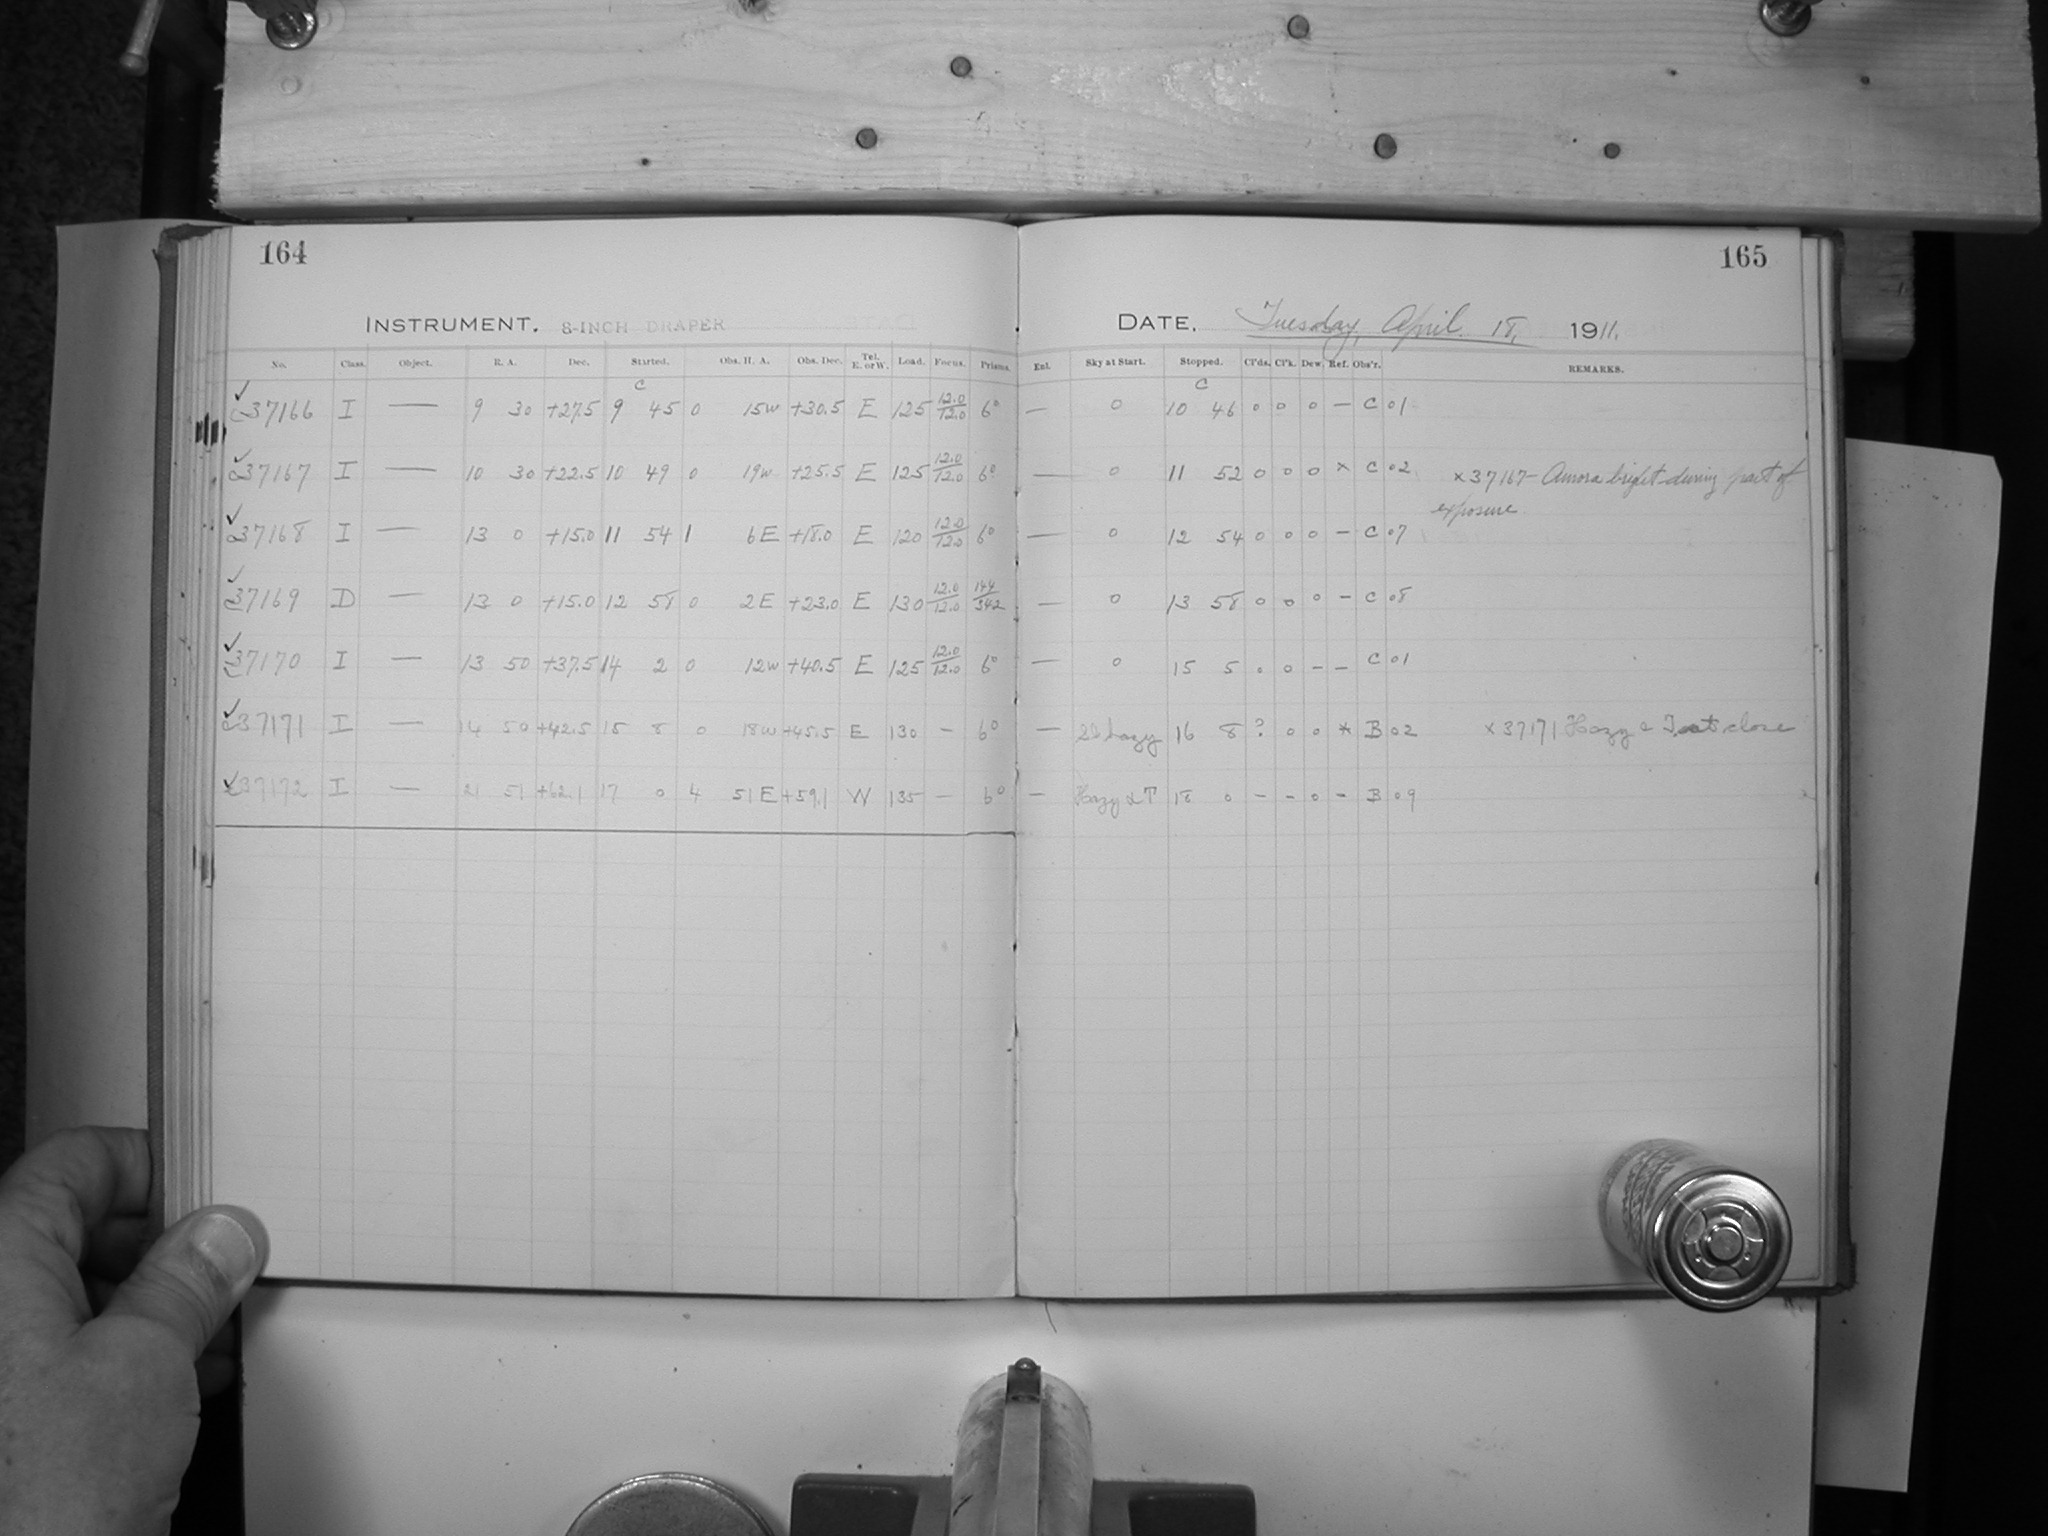 164
165
INSTRUMENT. 8-INCH DRAPER
DATE, Tuesday, April 18, 1911.
No. Class. Object. R. A. Dec. Started. Obs. H. A. Obs. Dec. Tel. E. or W. Load. Focus. Prisms. Enl. Sky at Start. Stopped. Cl'ds. Cl'k. Dew. Ref. Obs'r. REMARKS.
C C
✓ C37166 I — 9 30 +27.5 9 45 0 15W +30.5 E 125 12.0/12.0 6° — 0 10 46 0 0 0 — C 01
✓ C37167 I — 10 30 +22.5 10 49 0 19W +25.5 E 125 12.0/12.0 6° — 0 11 52 0 0 0 x C 02 x 37167 - Aurora bright during part of
exposure
✓ C37168 I — 13 0 +15.0 11 54 1 6E +18.0 E 120 12.0/12.0 6° — 0 12 54 0 0 0 — C 07
✓ C37169 D — 13 0 +15.0 12 58 0 2E +23.0 E 130 12.0/12.0 144/342 — 0 13 58 0 0 0 — C 08
✓ C37170 I — 13 50 +37.5 14 2 0 12W +40.5 E 125 12.0/12.0 6° — 0 15 5 0 0 — — C 01
✓ C37171 I — 14 50 +42.5 15 8 0 18W +45.5 E 130 — 6° — Sl hazy 16 8 ? 0 0 * B 02 x 37171 Hazy & T at close
✓ C37172 I — 21 51 +62.1 17 0 4 51E +59.1 W 135 — 6° — Hazy & T 18 0 — — 0 — B 09